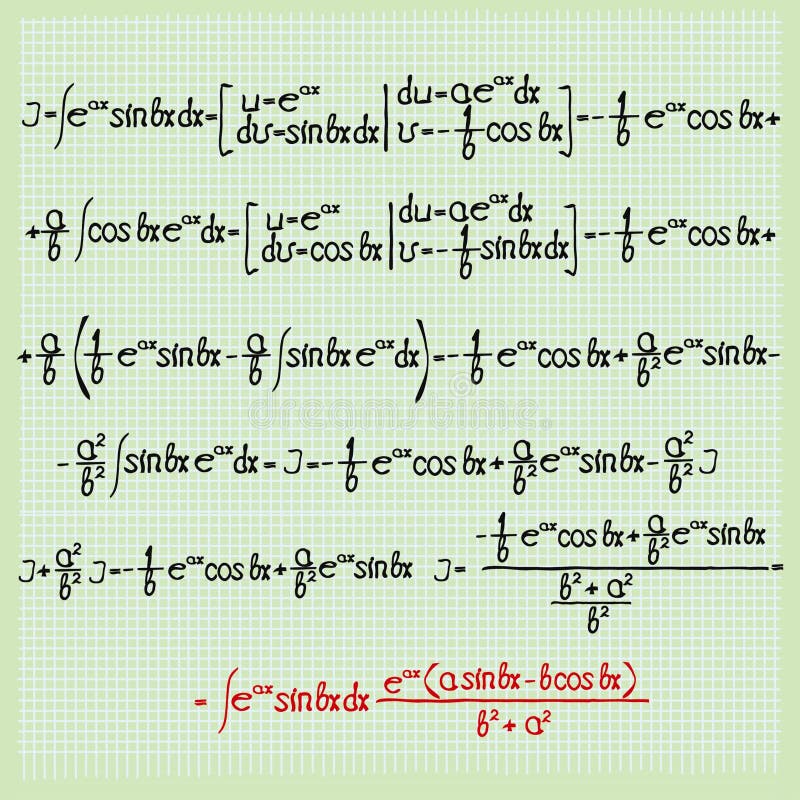 J=∫e^{ax}sinbxdx=[u=e^{ax} dv=sinbxdx | du=ae^{ax}dx v=-\frac{1}{b}cos bx]=-\frac{1}{b} e^{ax}cos bx+
+\frac{a}{b} ∫cos bx e^{ax}dx=[u=e^{ax} dv=cos bx | du=ae^{ax}dx v=-\frac{1}{b}sinbxdx]=-\frac{1}{b} e^{ax}cos bx+
+\frac{a}{b} (\frac{1}{b} e^{ax}sinbx-\frac{a}{b}∫sinbx e^{ax}dx)=-\frac{1}{b} e^{ax}cos bx+\frac{a}{b^2}e^{ax}sinbx-
-\frac{a^2}{b^2}∫sinbx e^{ax}dx= J=-\frac{1}{b} e^{ax}cos bx+\frac{a}{b^2}e^{ax}sinbx-\frac{a^2}{b^2}J
J+\frac{a^2}{b^2}J=-\frac{1}{b} e^{ax}cos bx+\frac{a}{b^2}e^{ax}sinbx J=\frac{-\frac{1}{b} e^{ax}cos bx+\frac{a}{b^2}e^{ax}sinbx}{\frac{b^2+a^2}{b^2}}=
=∫e^{ax}sinbxdx \frac{e^{ax}(asinbx-bcos bx)}{b^2+a^2}
dreamstime.com